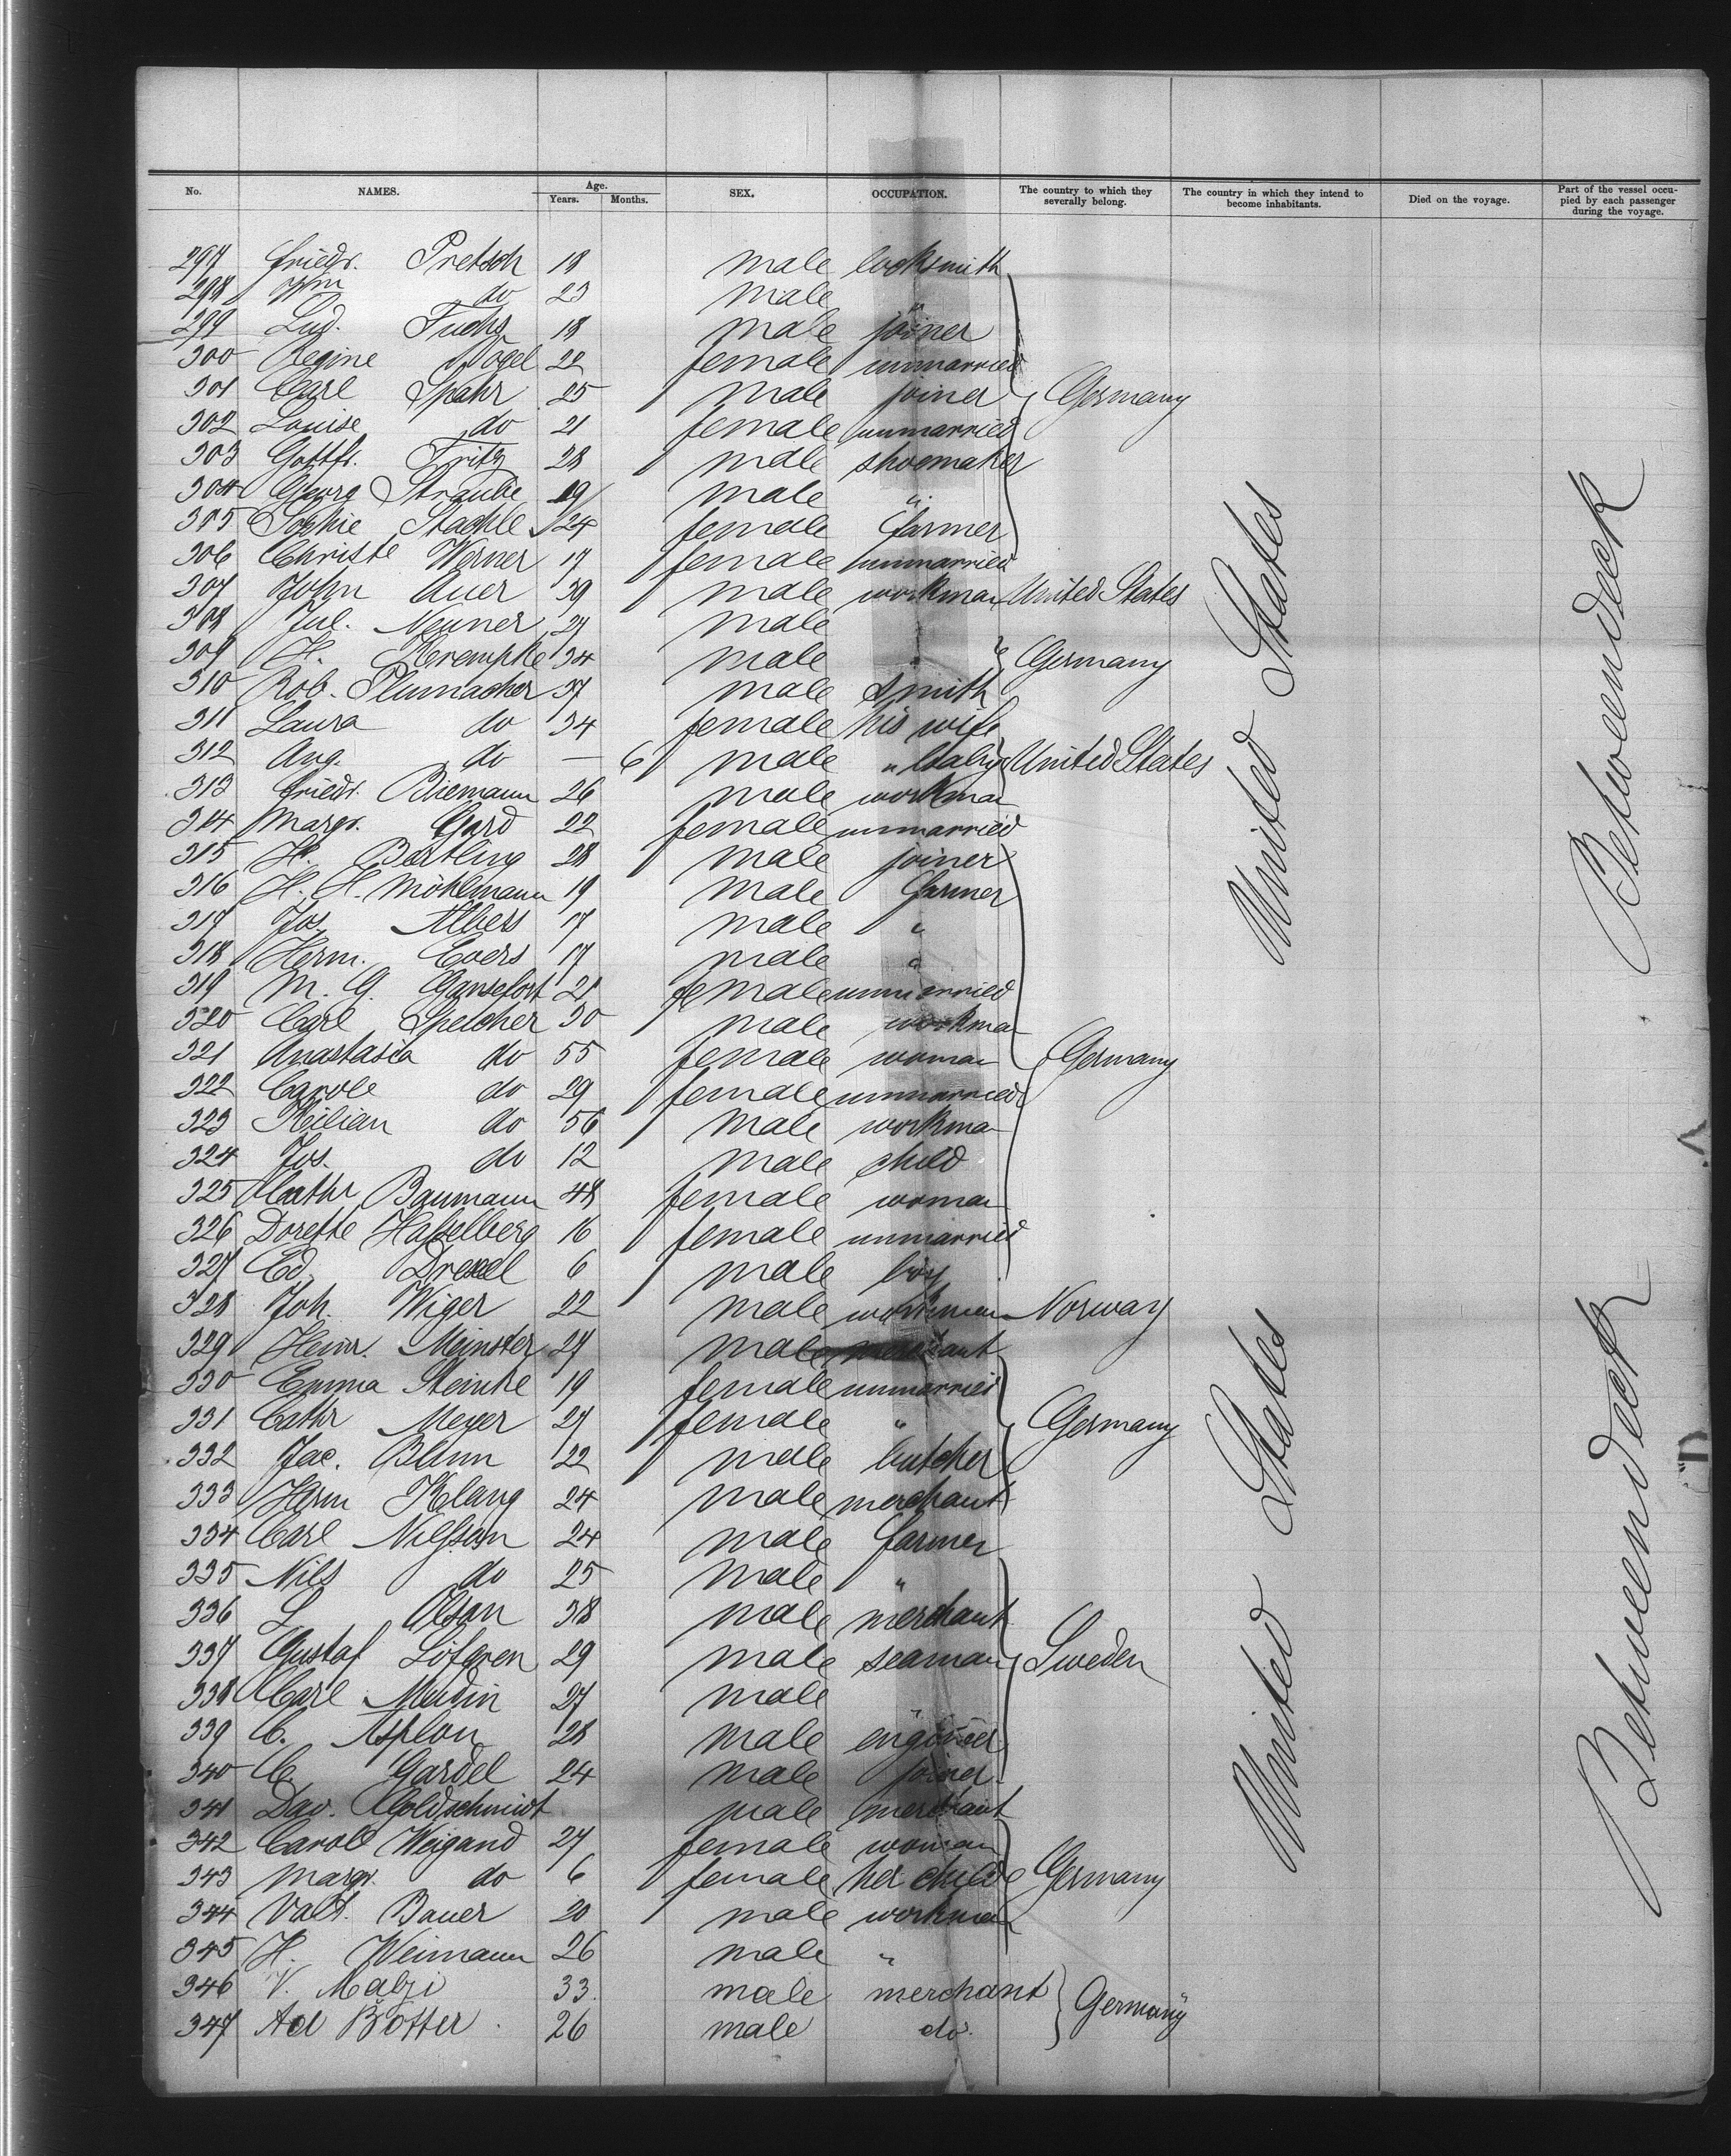 No. NAMES. Age. Years. Months. SEX. OCCUPATION. The country to which they severally belong. The country in which they intend to become inhabitants. Died on the voyage. Part of the vessel occupied by each passenger during the voyage.
297 Friedr. Pretsch 18 male locksmith
298 Wm do 23 male "
299 Lud. Fuchs 18 male joiner
300 Regine Vogel 22 female unmarried
301 Carl Spahr 25 male joiner Germany
302 Louise do 21 female unmarried
303 Gottfr. Fritz 28 male shoemaker
304 Georg Straube 19 male "
305 Sophie Stachle 24 female farmer
306 Christe Werner 17 female unmarried
307 John Auer 39 male workman United States
308 Jul. Neuner 27 male "
309 H. Krempke 34 male " Germany
310 Rob. Plumacher 37 male smith
311 Laura do 34 female his wife
312 Aug. do — 6 male " baby United States
313 Friedr. Biemann 26 male workman
314 Margr. Gard 22 female unmarried
315 Hr. Bertling 28 male joiner
316 H. H. Möhlmann 19 male farmer
317 Jos. Albers 17 male "
318 Herm. Evers 17 male "
319 M. G. Gansefort 21 female unmarried
320 Carl Speicher 30 male workman
321 Anastasia do 55 female woman Germany
322 Carole do 29 female unmarried
323 Kilian do 56 male workman
324 Jos. do 12 male child
325 Cathr Baumann 48 female woman
326 Dorette Hasselberg 16 female unmarried
327 Ed. Drexel 6 male boy
328 Joh. Wiger 22 male workman Norway
329 Heinr. Meinster 27 male merchant
330 Emma Steinke 19 female unmarried
331 Cathr Meyer 27 female " Germany
332 Jac. Blum 22 male butcher
333 Herm Klang 24 male merchant
334 Carl Nilsson 24 male farmer
335 Nils do 25 male "
336 L Olson 38 male merchant
337 Gustaf Löfgren 29 male seaman Sweden
338 Carl Mudin 27 male "
339 C. Asplon 28 male engineer
340 C Gardel 24 male joiner
341 Dav. Goldschmidt male merchant
342 Carole Weigand 27 female woman
343 Margr. do 6 female her child Germany
344 Valt. Bauer 20 male workman
345 H. Weimann 26 male "
346 V. Malzi 33. male merchant
347 Ad Botter 26 male do. Germany
United States
Betweendeck
United States
Betweendeck